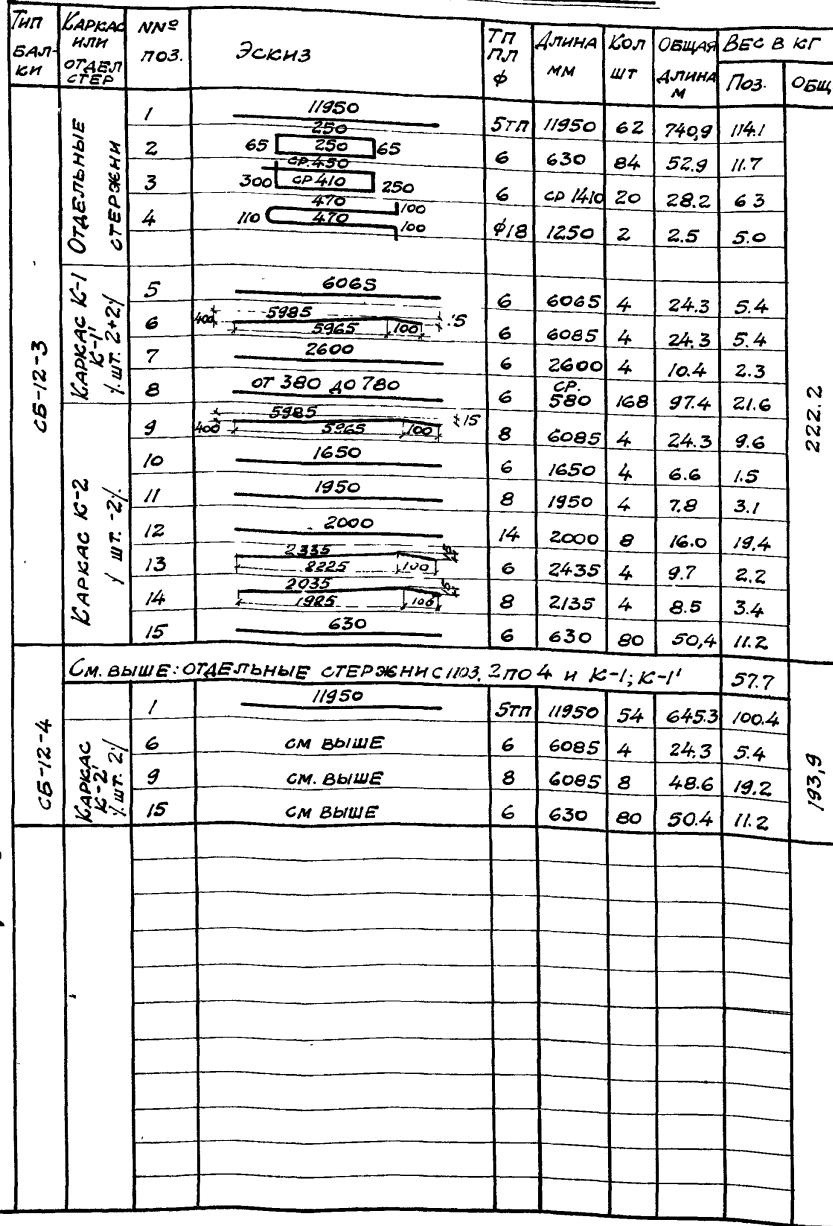 Тип балки | Каркас или отдел стер | NNº поз. | Эскиз | ТП ПЛ ф | Длина мм | Кол шт | Общая длина м | Вес в кг Поз. | Общ
СБ-12-3
Отдельные стержни
1 | 11950 | 5тп | 11950 | 62 | 740,9 | 114.1
2 | 250 65 250 65 | 6 | 630 | 84 | 52.9 | 11.7
3 | ср.450 300 ср 410 250 | 6 | ср 1410 | 20 | 28.2 | 6 3
4 | 470 100 110 470 100 | ф18 | 1250 | 2 | 2.5 | 5.0
Каркас К-1 К-1' /шт. 2+2/
5 | 6065 | 6 | 6065 | 4 | 24.3 | 5.4
6 | 400 5985 5965 100 15 | 6 | 6085 | 4 | 24,3 | 5.4
7 | 2600 | 6 | 2600 | 4 | 10.4 | 2.3
8 | от 380 до 780 | 6 | ср. 580 | 168 | 97.4 | 21.6
Каркас К-2 / шт. -2/
9 | 400 5985 5965 100 15 | 8 | 6085 | 4 | 24.3 | 9.6
10 | 1650 | 6 | 1650 | 4 | 6.6 | 1.5
11 | 1950 | 8 | 1950 | 4 | 7,8 | 3.1
12 | 2000 | 14 | 2000 | 8 | 16.0 | 19.4
13 | 2335 2225 100 | 6 | 2435 | 4 | 9.7 | 2.2
14 | 2035 1925 100 | 8 | 2135 | 4 | 8.5 | 3.4
15 | 630 | 6 | 630 | 80 | 50,4 | 11.2
222.2
СБ-12-4
См. выше: отдельные стержни с поз. 2 по 4 и К-1; К-1' | 57.7
Каркас К-2' /шт. 2/
1 | 11950 | 5тп | 11950 | 54 | 645.3 | 100.4
6 | см выше | 6 | 6085 | 4 | 24.3 | 5.4
9 | см. выше | 8 | 6085 | 8 | 48.6 | 19.2
15 | см выше | 6 | 630 | 80 | 50.4 | 11.2
193,9